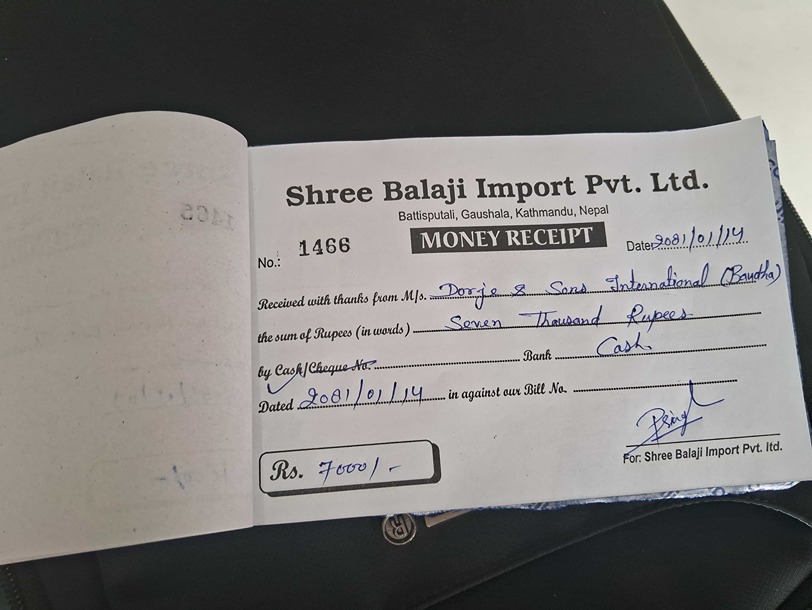 Shree Balaji Import Pvt. Ltd.
Battisputali, Gaushala, Kathmandu, Nepal
No.: 1466 MONEY RECEIPT Date 2081/01/14
Received with thanks from M/s. Dorje & Sons International (Baudha)
the sum of Rupees (in words) Seven Thousand Rupees
by Cash/Cheque No. Bank Cash
Dated 2081/01/14 in against our Bill No.
Rs. 7000/-
For: Shree Balaji Import Pvt. ltd.